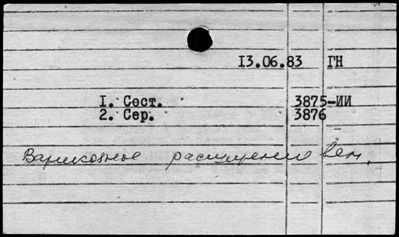 13.06.83 ГН
I. Сост. 3875-ИИ
2. Сер. 3876
Варикозное расширение вен.